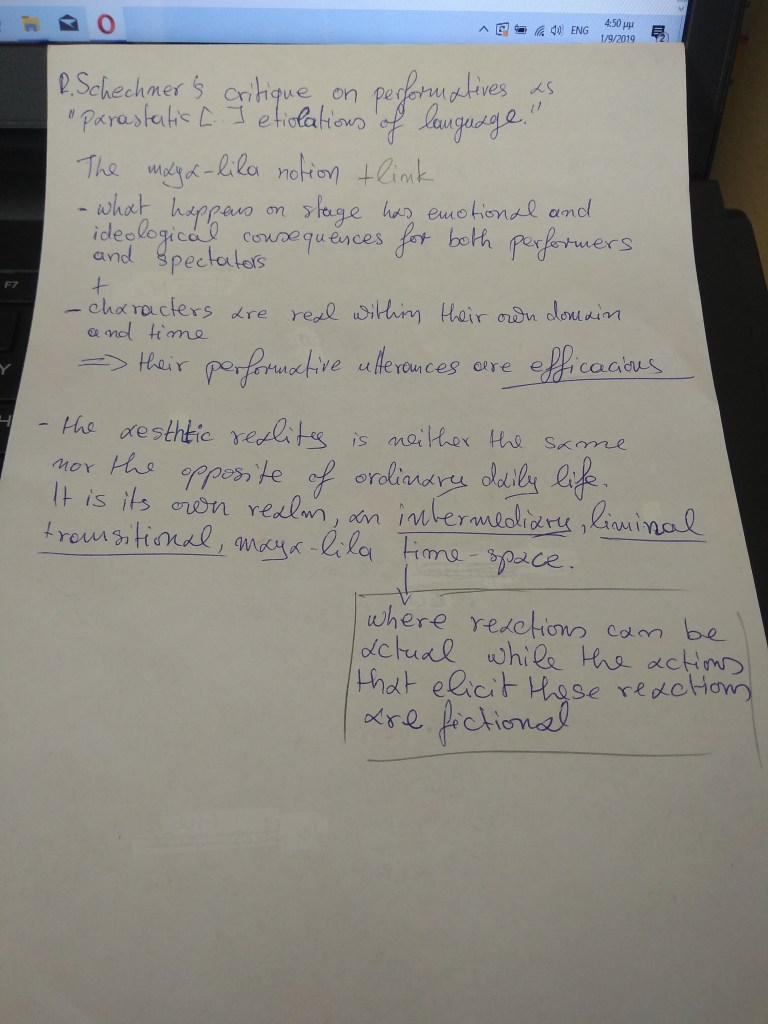 4:50 μμ
ENG
1/9/2019
F7
R.Schechner's critique on performatives as
"parastatic [..] etiolations of language."
The maya-lila notion + link
- what happens on stage has emotional and
ideological consequences for both performers
and spectators
+
- characters are real within their own domain
and time
=> their performative utterances are efficacious
- the aesthtic reality is neither the same
nor the opposite of ordinary daily life.
It is its own realm, an intermediary, liminal
transitional, maya-lila time-space.
where reactions can be
actual while the actions
that elicit these reactions
are fictional